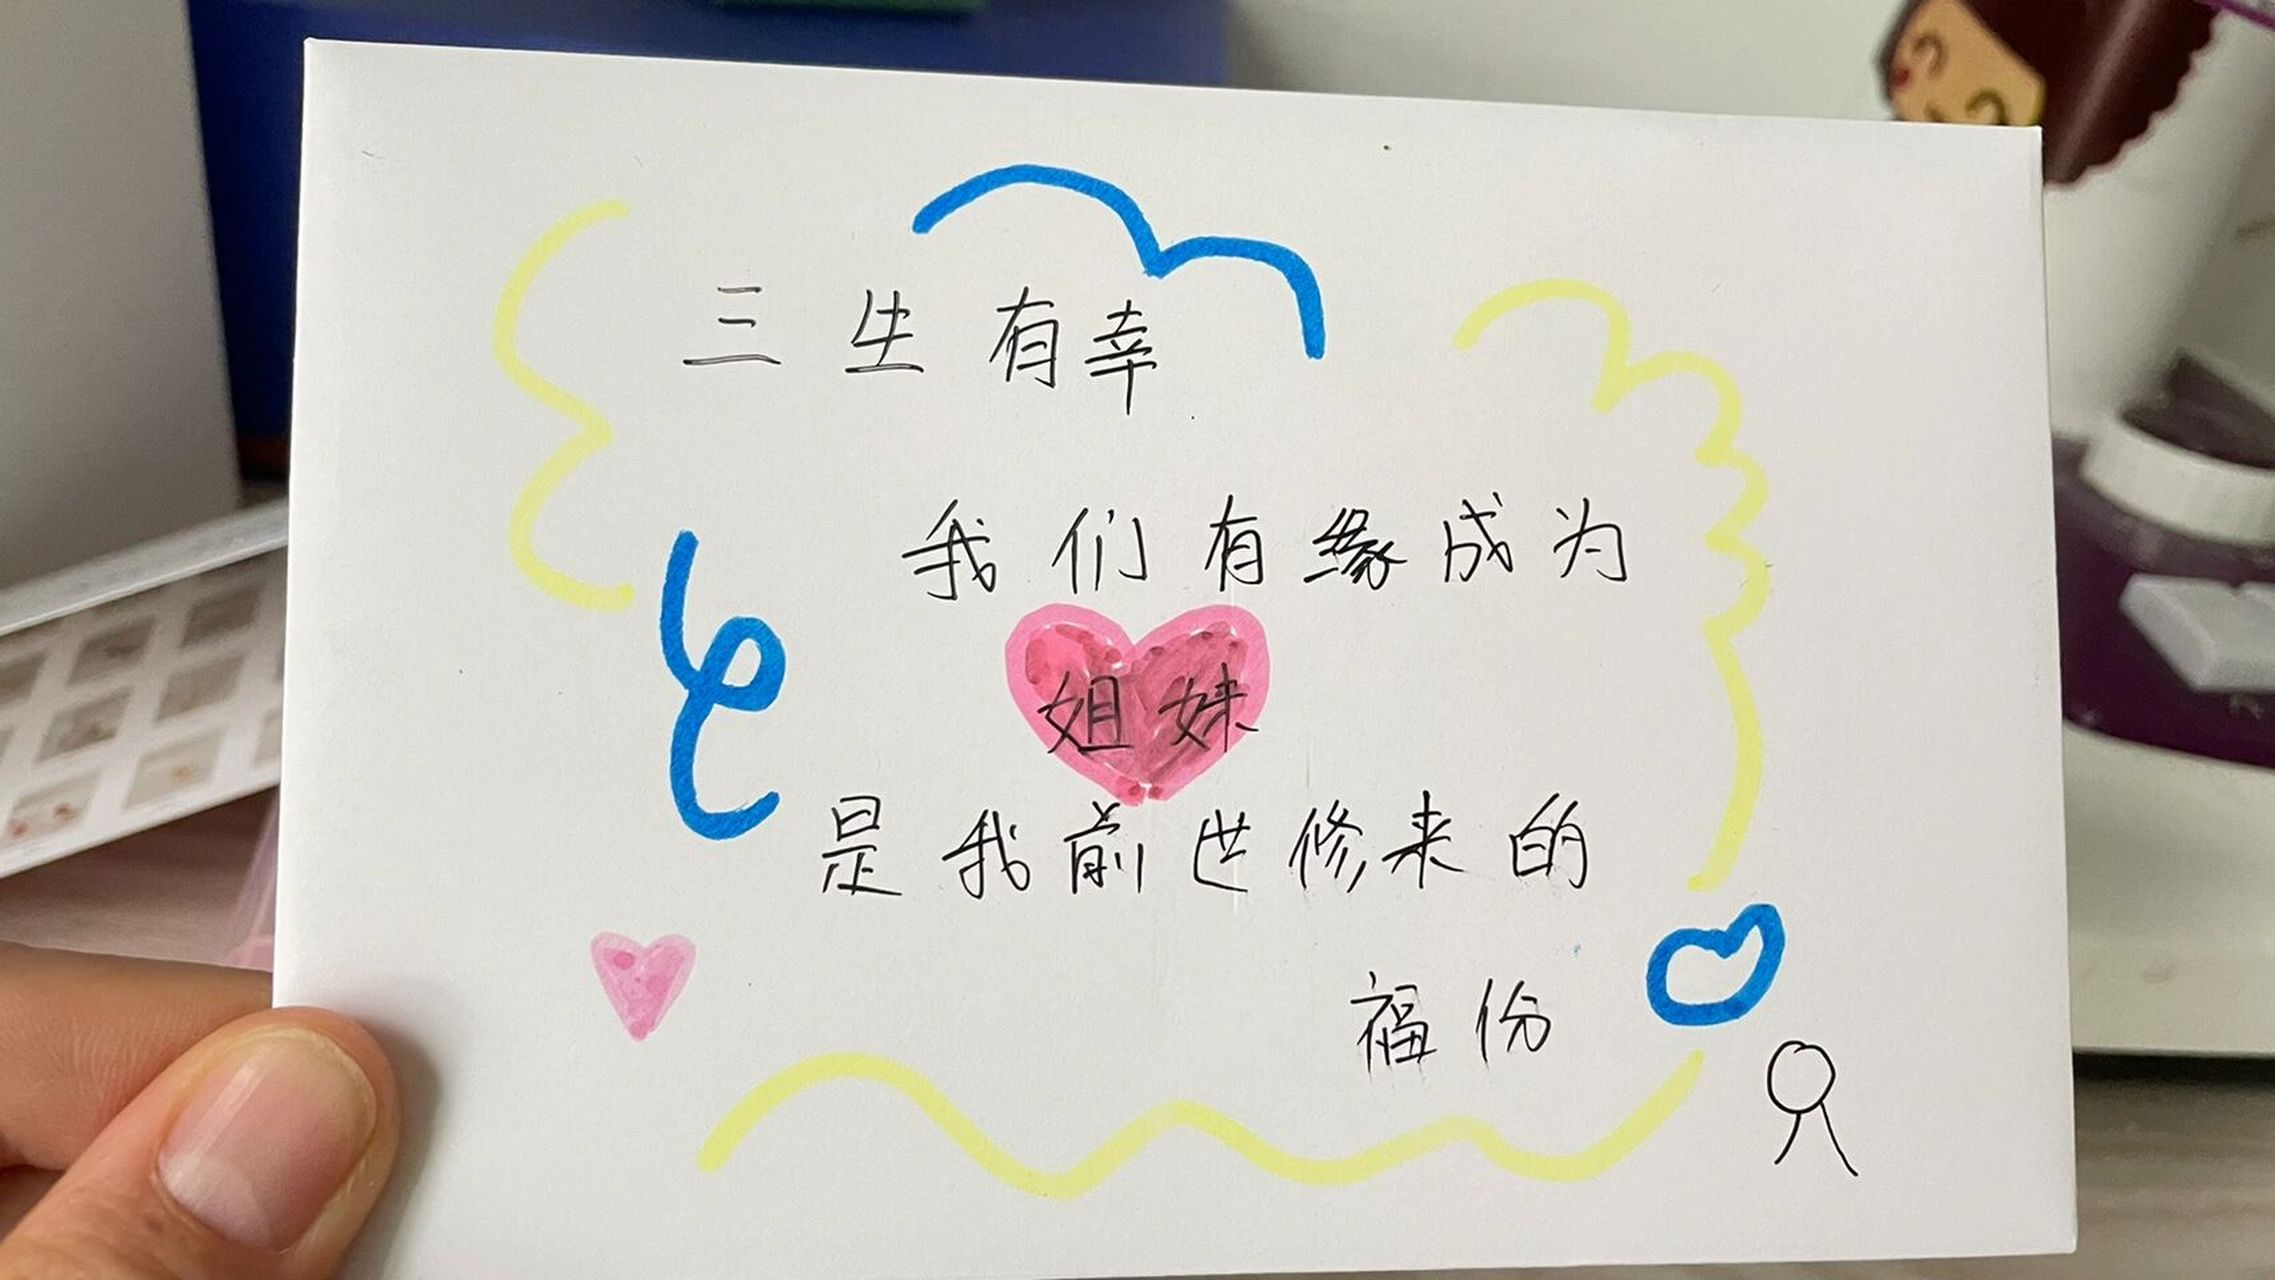 三生有幸
我们有缘成为
姐妹
是我前世修来的
福份